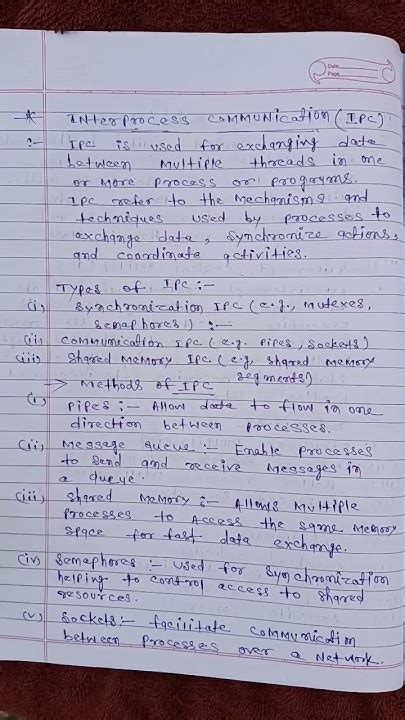 Date
Page
* INTERPROCESS COMMUNICATION (IPC)
:- IPC is used for exchanging data
between multiple threads in one
or more process or programs.
IPC refer to the mechanisms and
techniques used by processes to
exchange data, synchronize actions,
and coordinate activities.
Types of IPC :-
(i) Synchronization IPC (e.g., mutexes,
semaphores) :-
(ii) communication IPC (e.g. pipes, sockets)
(iii) shared memory IPC (e.g, shared memory
segments)
→ Methods of IPC
(i) Pipes :- Allow data to flow in one
direction between processes.
(ii) Message queue :- Enable processes
to send and receive messages in
a queue.
(iii) Shared Memory :- Allows multiple
processes to access the same memory
space for fast data exchange.
(iv) Semaphores :- used for synchronization
helping to control access to shared
resources.
(v) Sockets :- facilitate communication
between processes over a network.